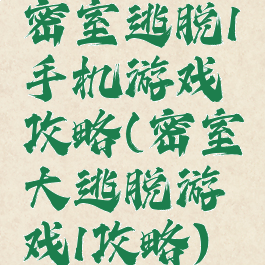 密室逃脱1
手机游戏
攻略(密室
大逃脱游
戏1攻略)